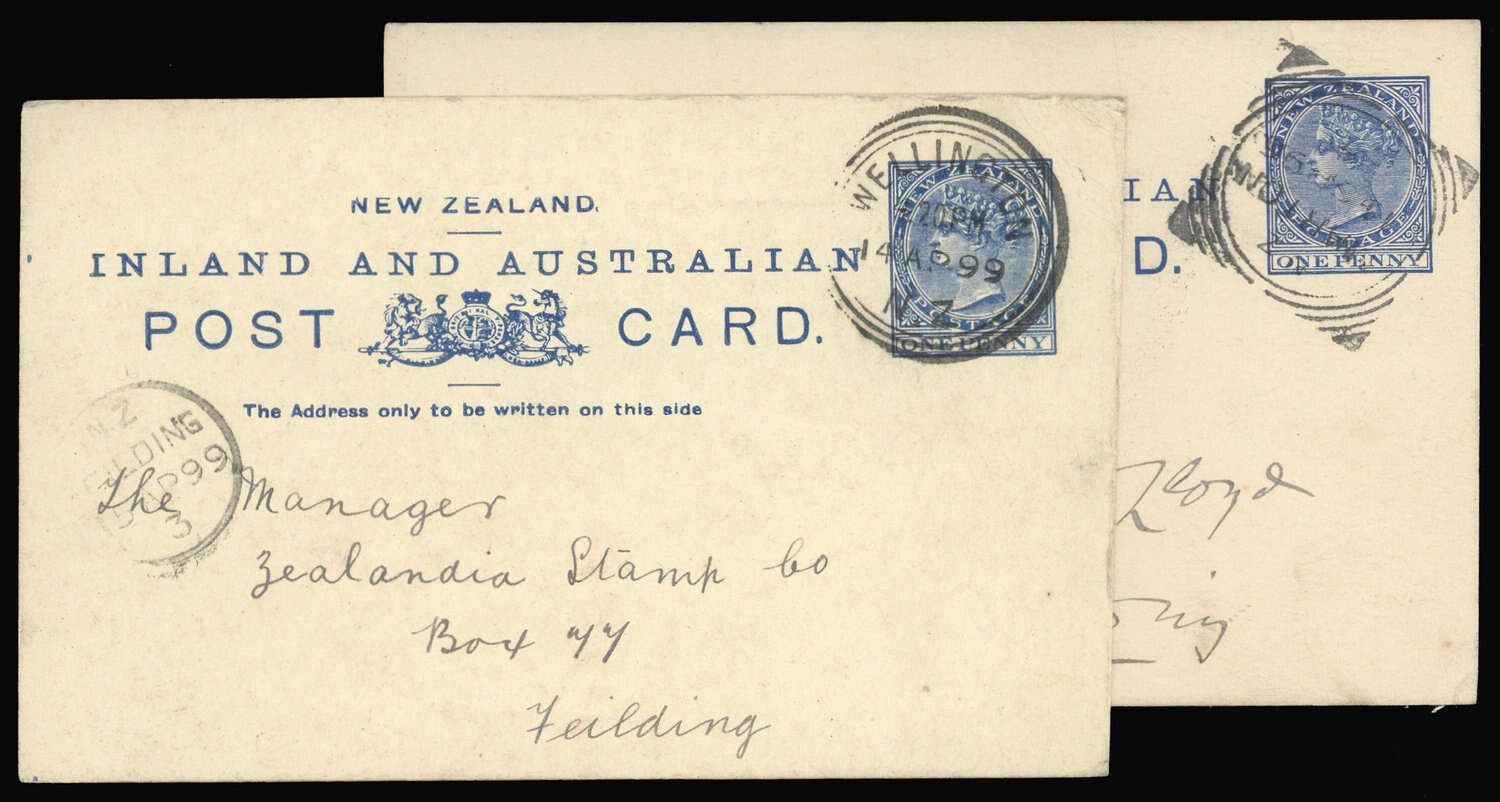 NEW ZEALAND.
INLAND AND AUSTRALIAN
POST CARD.
The Address only to be written on this side
WELLINGTON
20 PM
14 AP 99
N.Z
NEW ZEALAND
POSTAGE
ONE PENNY
N.Z
FEILDING
AP 99
3
The Manager
Zealandia Stamp Co
Box 77
Feilding
IAN
D.
NEW ZEALAND
POSTAGE
ONE PENNY
MARTON
Lloyd